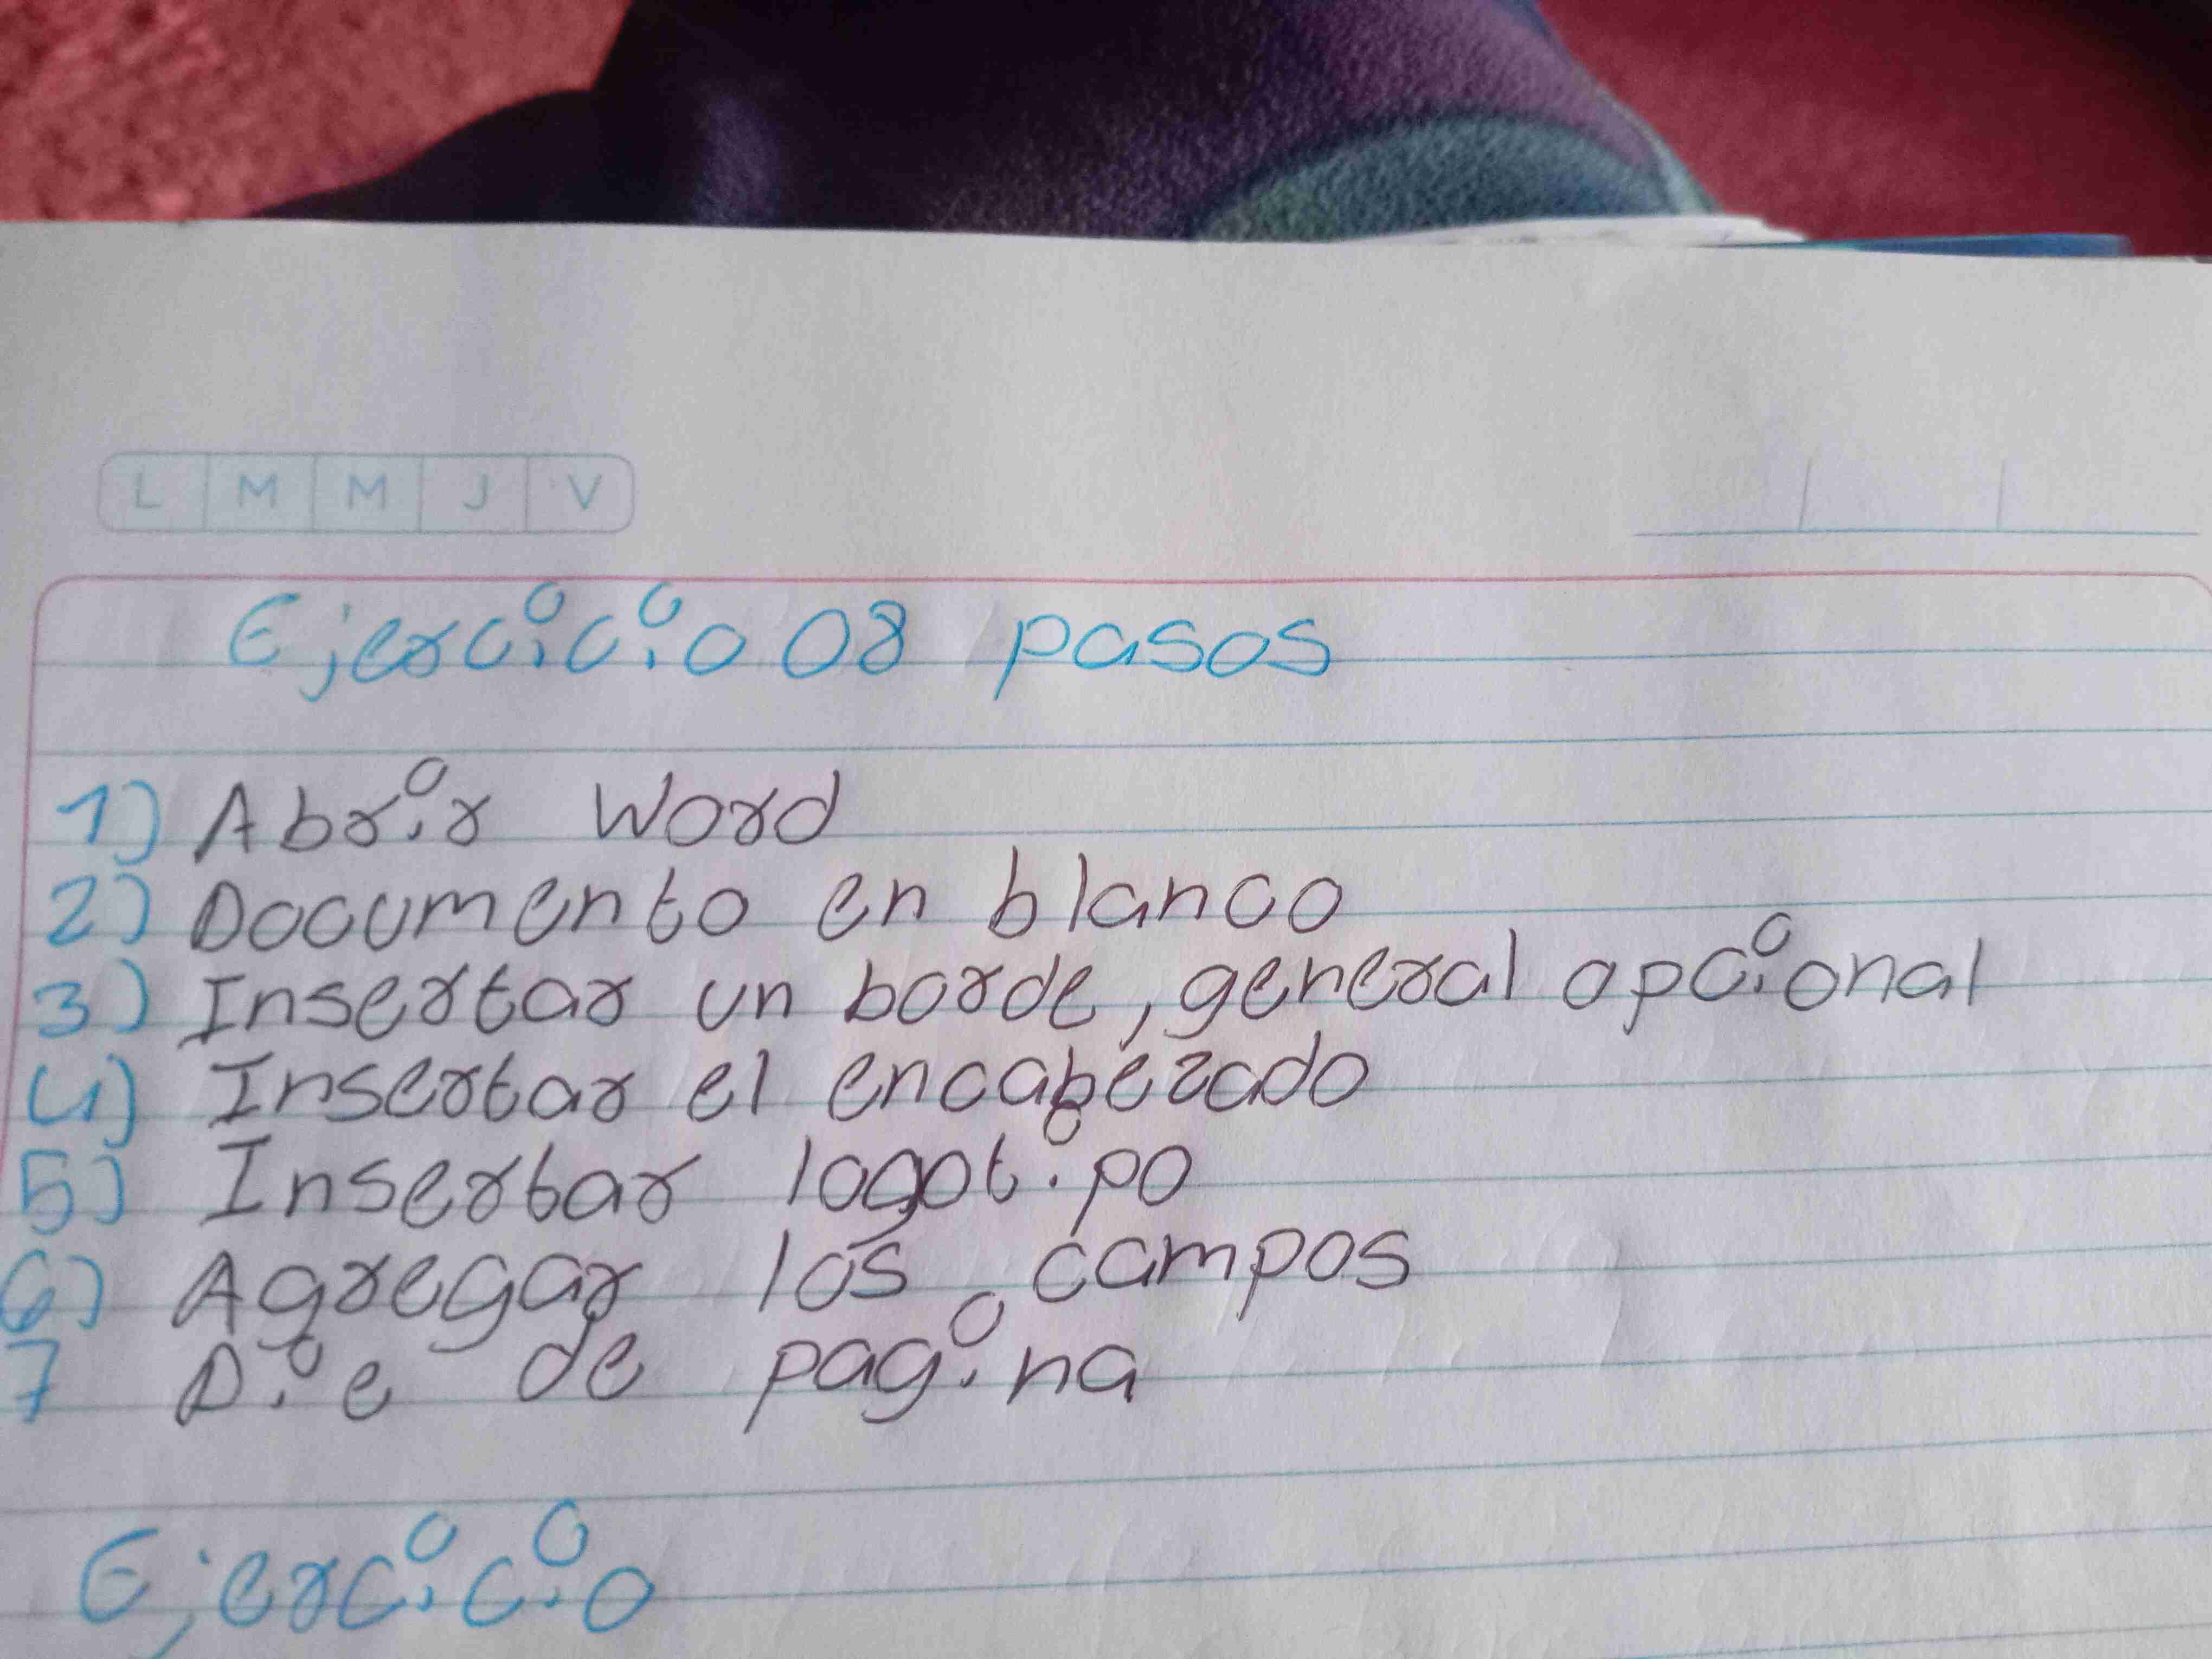 L M M J V
Ejercicio 08 pasos
1) Abrir Word
2) Documento en blanco
3) Insertar un borde, general opcional
4) Insertar el encabezado
5) Insertar logotipo
6) Agregar los campos
7 Pie de pagina
Ejercicio